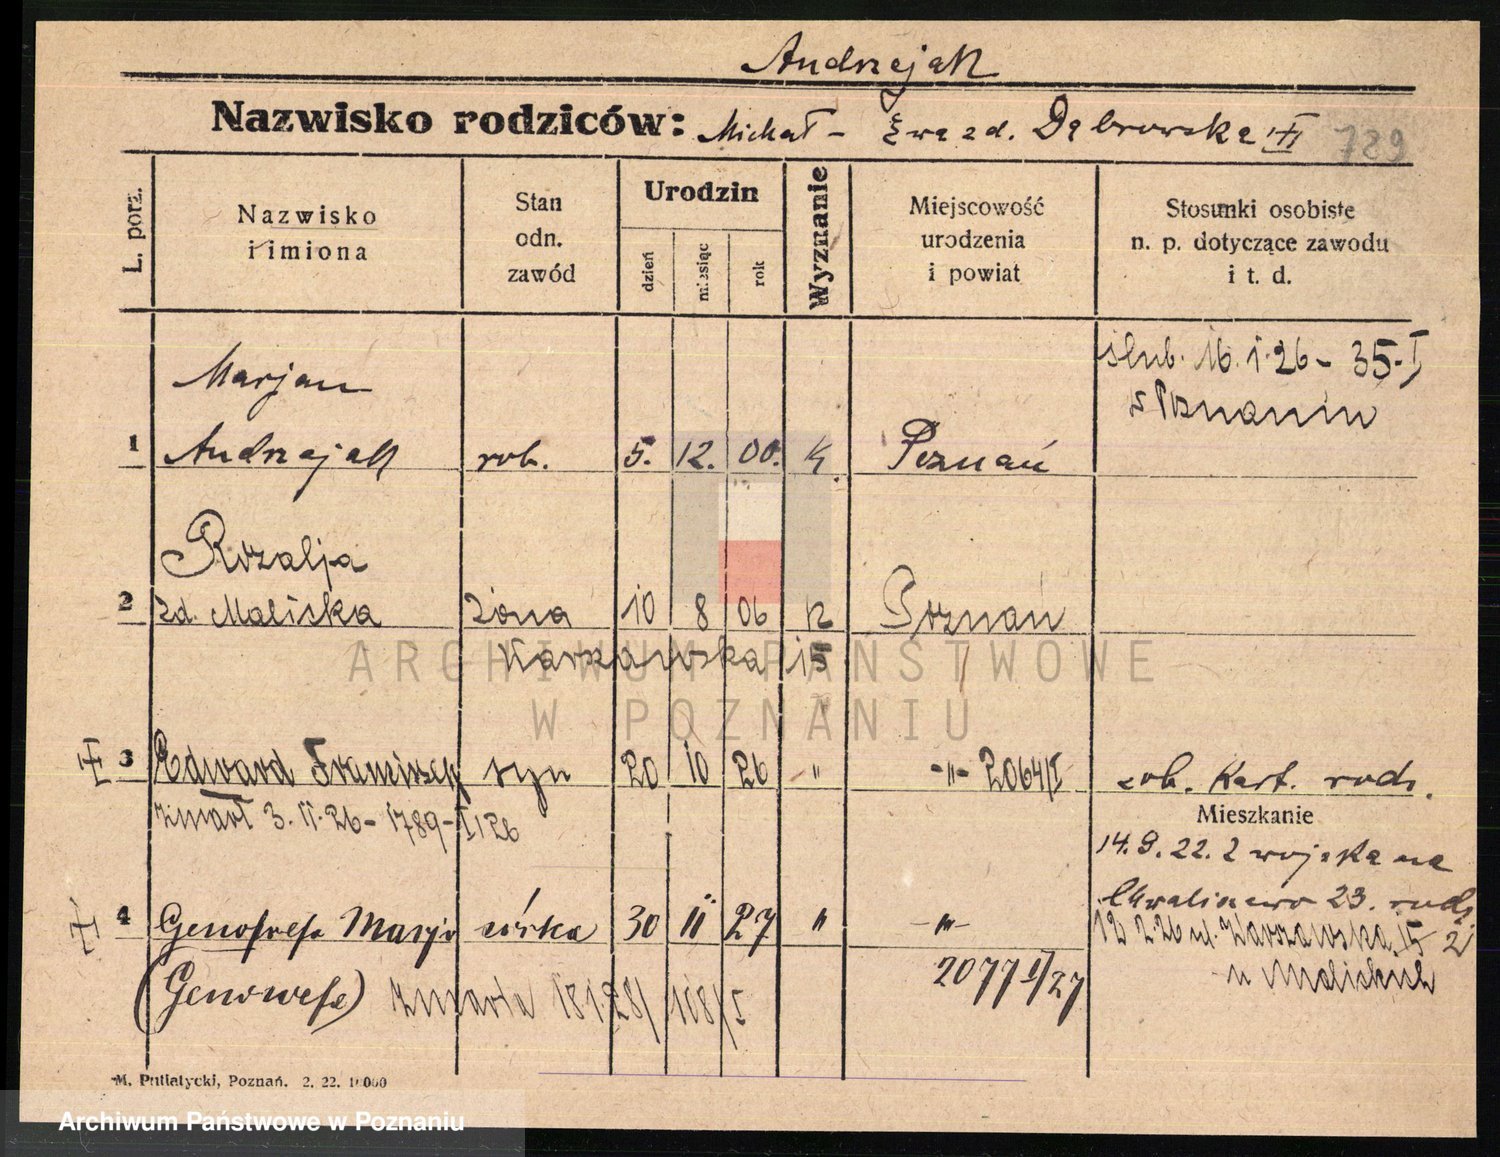 Andrzejak
Nazwisko rodziców: Michał - Ewa zd. Dąbrowska 789
L. porz.
Nazwisko
i imiona
Stan
odn.
zawód
Urodzin
dzień
miesiąc
rok
Wyznanie
Miejscowość
urodzenia
i powiat
Stosunki osobiste
n. p. dotyczące zawodu
i t. d.
ślub. 16.1.26 - 35-I
w Poznaniu
Marjan
1 Andrzejak rob. 5. 12. 00. k. Poznań
Rozalja
2 zd. Maliska żona 10 8 06 k Poznań
Warszawska 15
3 Edward Franciszek syn 20 10 26 " -"- 2064/I zob. Kart. rodz.
zmarł 3.11.26 - 1789-I/26
Mieszkanie
14.9.22. z wojska na
Chwaliszewo 23. rodz
4 Genofwefa Marja córka 30 11 27 " -"-
12 2.26 ul. Warszawska 15
u Maliskich
2077 I/27
(Genowefa) zmarła 18 1 28/ 108/I
M. Putiatycki, Poznań. 2. 22. 10000
ARCHIWUM PAŃSTWOWE
W POZNANIU
Archiwum Państwowe w Poznaniu